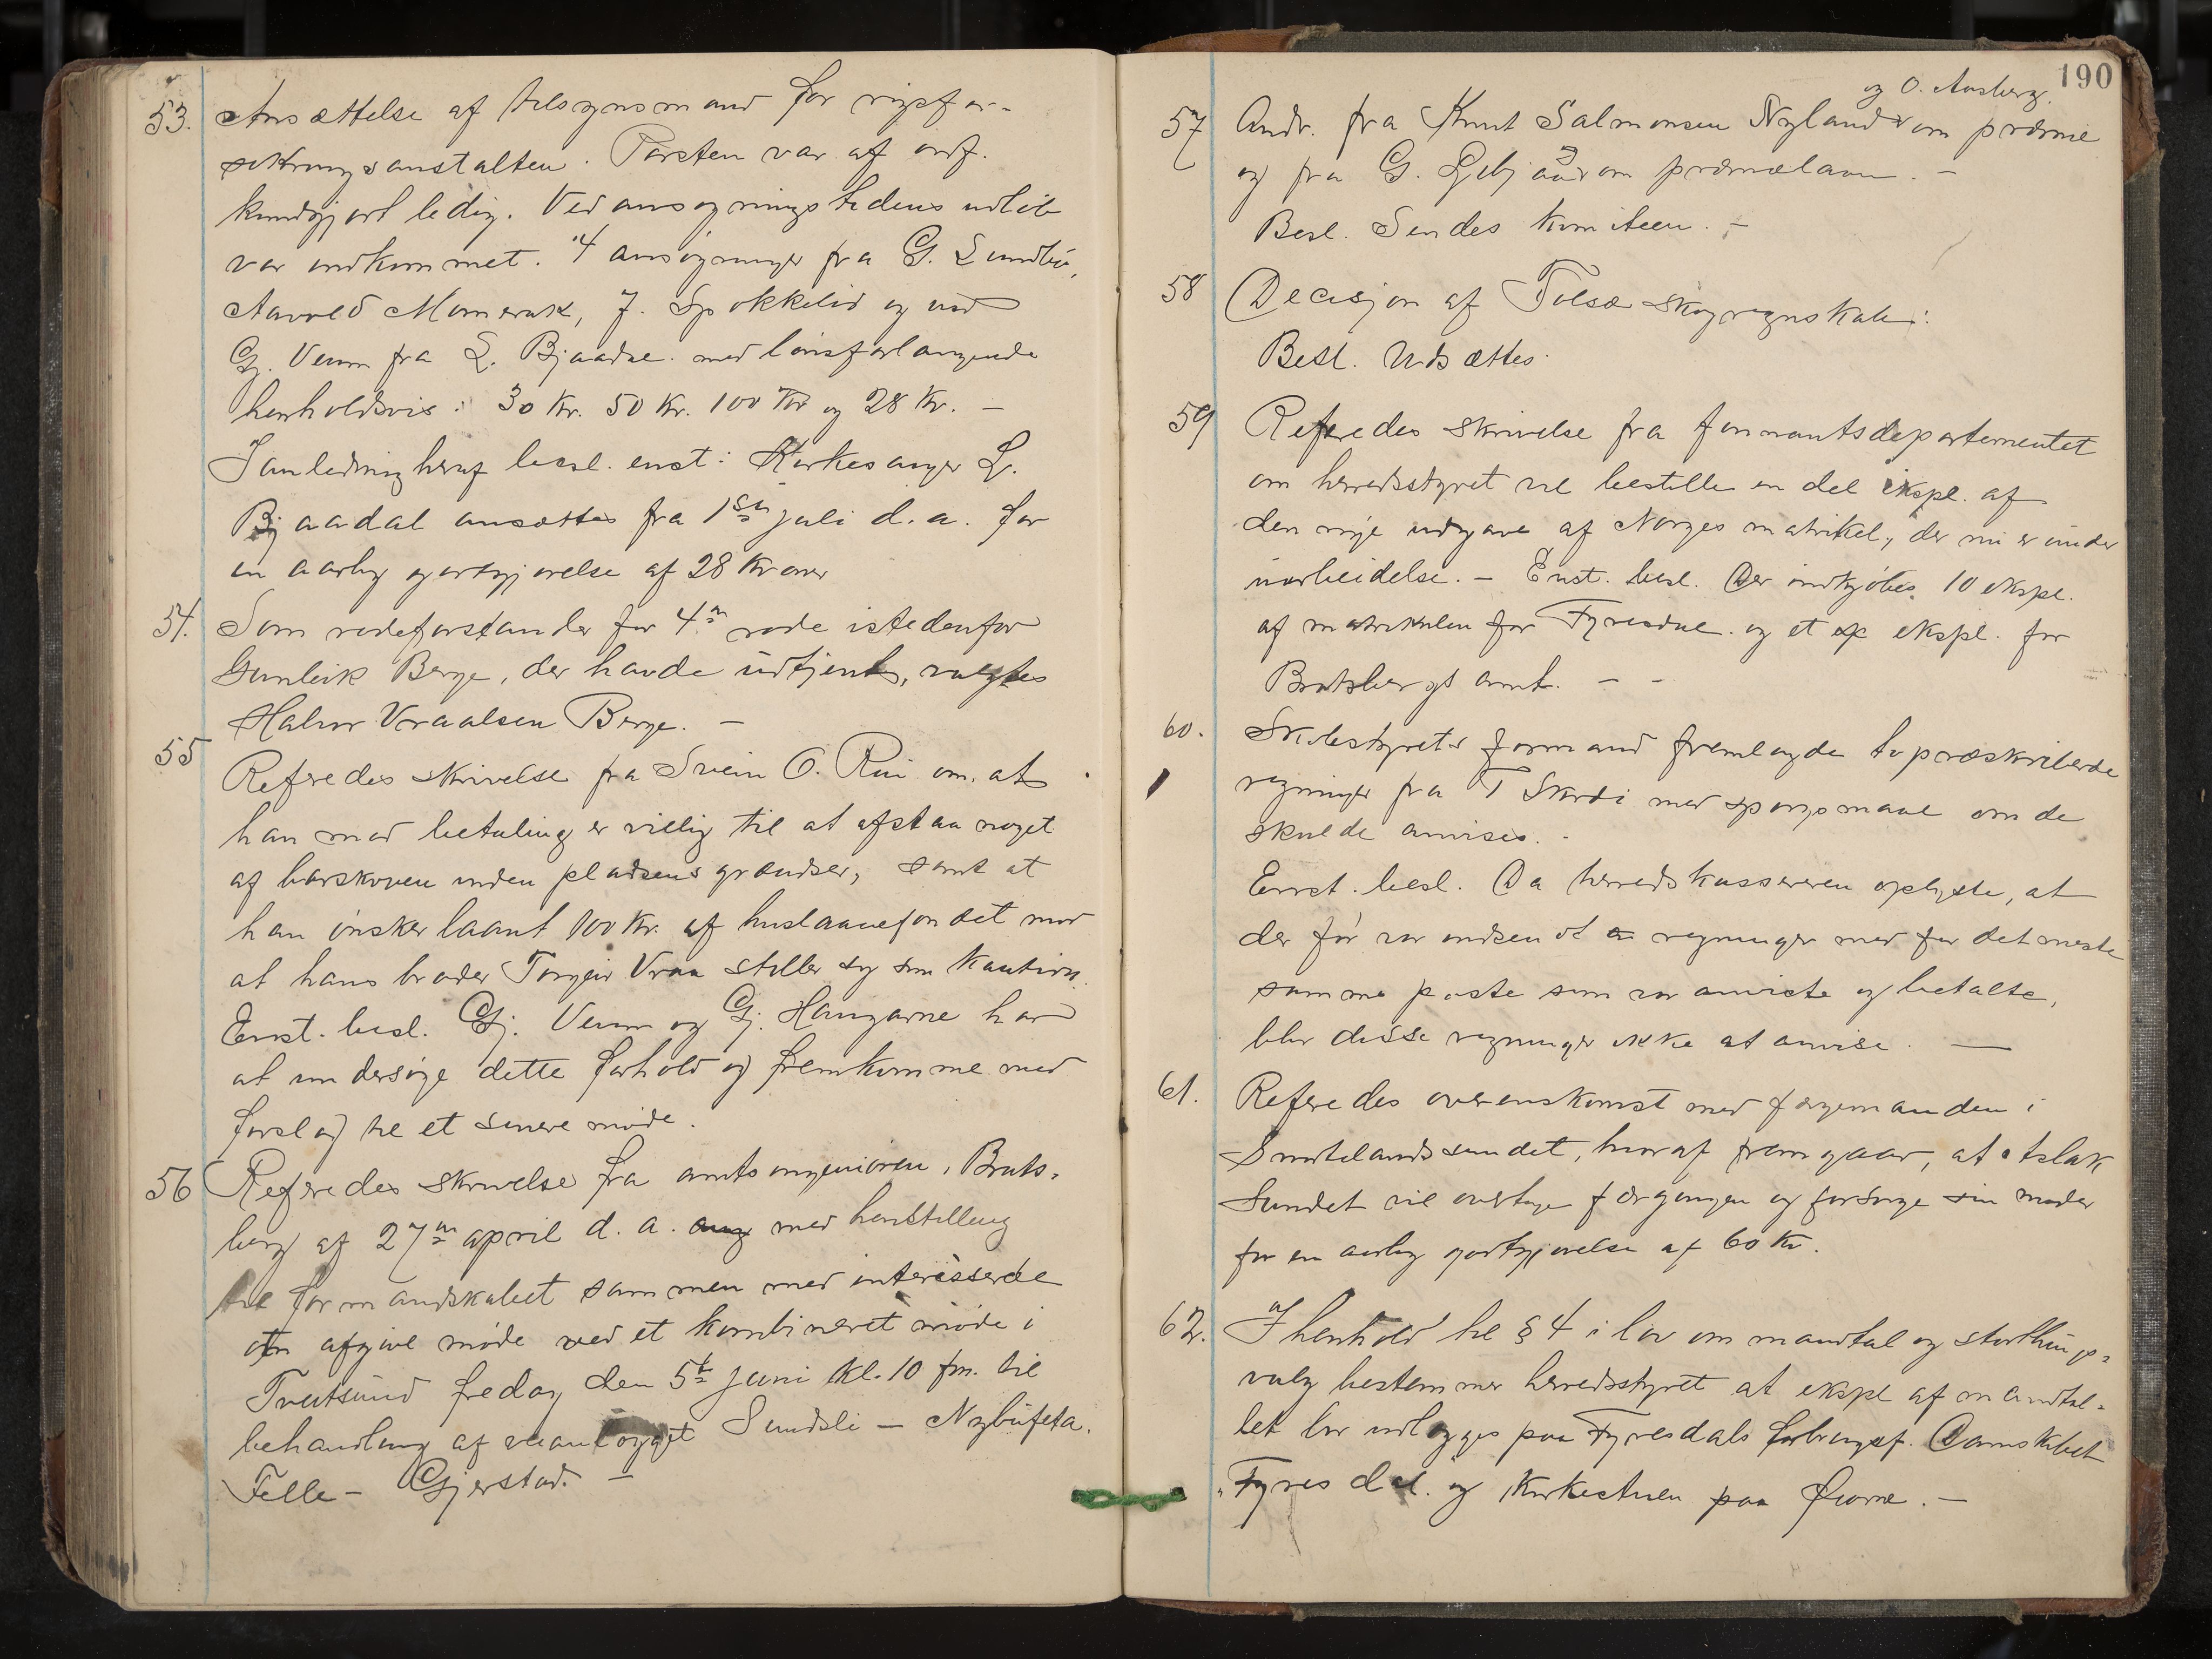 53. Ansættelse af tilsynsmand for rigsfor-
sikringsanstalten. Posten var af ordf.
kundgjort ledig. Ved ansøgningstidens udløb
var indkommet 4 ansøgninger fra G. Sundbø,
Aavold Momrak, J. Spokkelid og ved
Gj. Veum fra L. Bjaadal med lønsforlangende
henholdsvis: 30 Kr. 50 Kr. 100 Kr og 28 Kr. –
I anledning heraf besl. enst: Kirkesanger L.
Bjaadal ansættes fra 1ste juli d. a. for
en aarlig godtgjørelse af 28 Kroner
54. Som rodeforstander for 4de rode istedenfor
Gunleik Berge, der havde udtjent, valgtes
Halvor Vraalsen Berge. –
55 Referedes skrivelse fra Svein O. Rui om at
han mod betaling er villig til at afstaa noget
af barskoven inden pladsens grændser, samt at
han ønsker laant 100 Kr. af huslaanefondet mod
at hans broder Torgeir Vraa stiller sig som kaution.
Enst. besl. Gj. Veum og Gj. Haugarne har
at undersøge dette forhold og fremkomme med
forslag til et senere møde.
56 Referedes skrivelse fra amtsingeniøren i Brats-
berg af 27de april d. a. med henstilling
til formandskabet sammen med interesserede
om afgive møde ved et kombineret møde i
Treutsund fredag den 5te juni kl. 10 fm. til
behandling af veianlægget Sundsli – Nybufeta.
Felle – Gjerstad. –
190
og O. Aasberg.
57 Andr. fra Knut Salmonsen Nyland om præmie
og fra G. om præmielaan. –
Besl. Sendes komiteen. –
58 Decisjon af Tolsæ skogregnskab:
Besl. Udsættes
59 Referedes skrivelse fra finnantsdepartementet
om herredsstyret vil bestille en del ekspl. af
den nye udgave af Norges matrikel, der nu er under
uarbeidelse. – Enst. besl. Der indkjøbes 10 ekspl.
af matrikulen for Fyresdal og et ekspl. for
Bratsbergs amt. – –
60. Skolestyrets formand fremlagde to præskriberede
regninger fra T Skrdi med spørgsmaal om de
skulde anvises. –
Enst. besl. Da herredskassereren oplyste, at
der før var indsendt regninger med for det meste
samme poste som var anviste og betalte,
blir disse regninger ikke at anvise. –
61. Referedes overenskomst med færgemanden i
Smitelandssundet, hvoraf fremgaar, at Aslak
Sundet vil overtage færgingen og forsørge sin moder
for en aarlig godtgjørelse af 60 Kr.
62. I henhold til § 4 i lov om mandtal og storthings-
valg bestemmer herredsstyret at ekspl af mandtal-
let bør udlægges paa Fyresdals forbrugsf. Damskibet
"Fyresdal" og Kirkestuen paa Øivræ. –